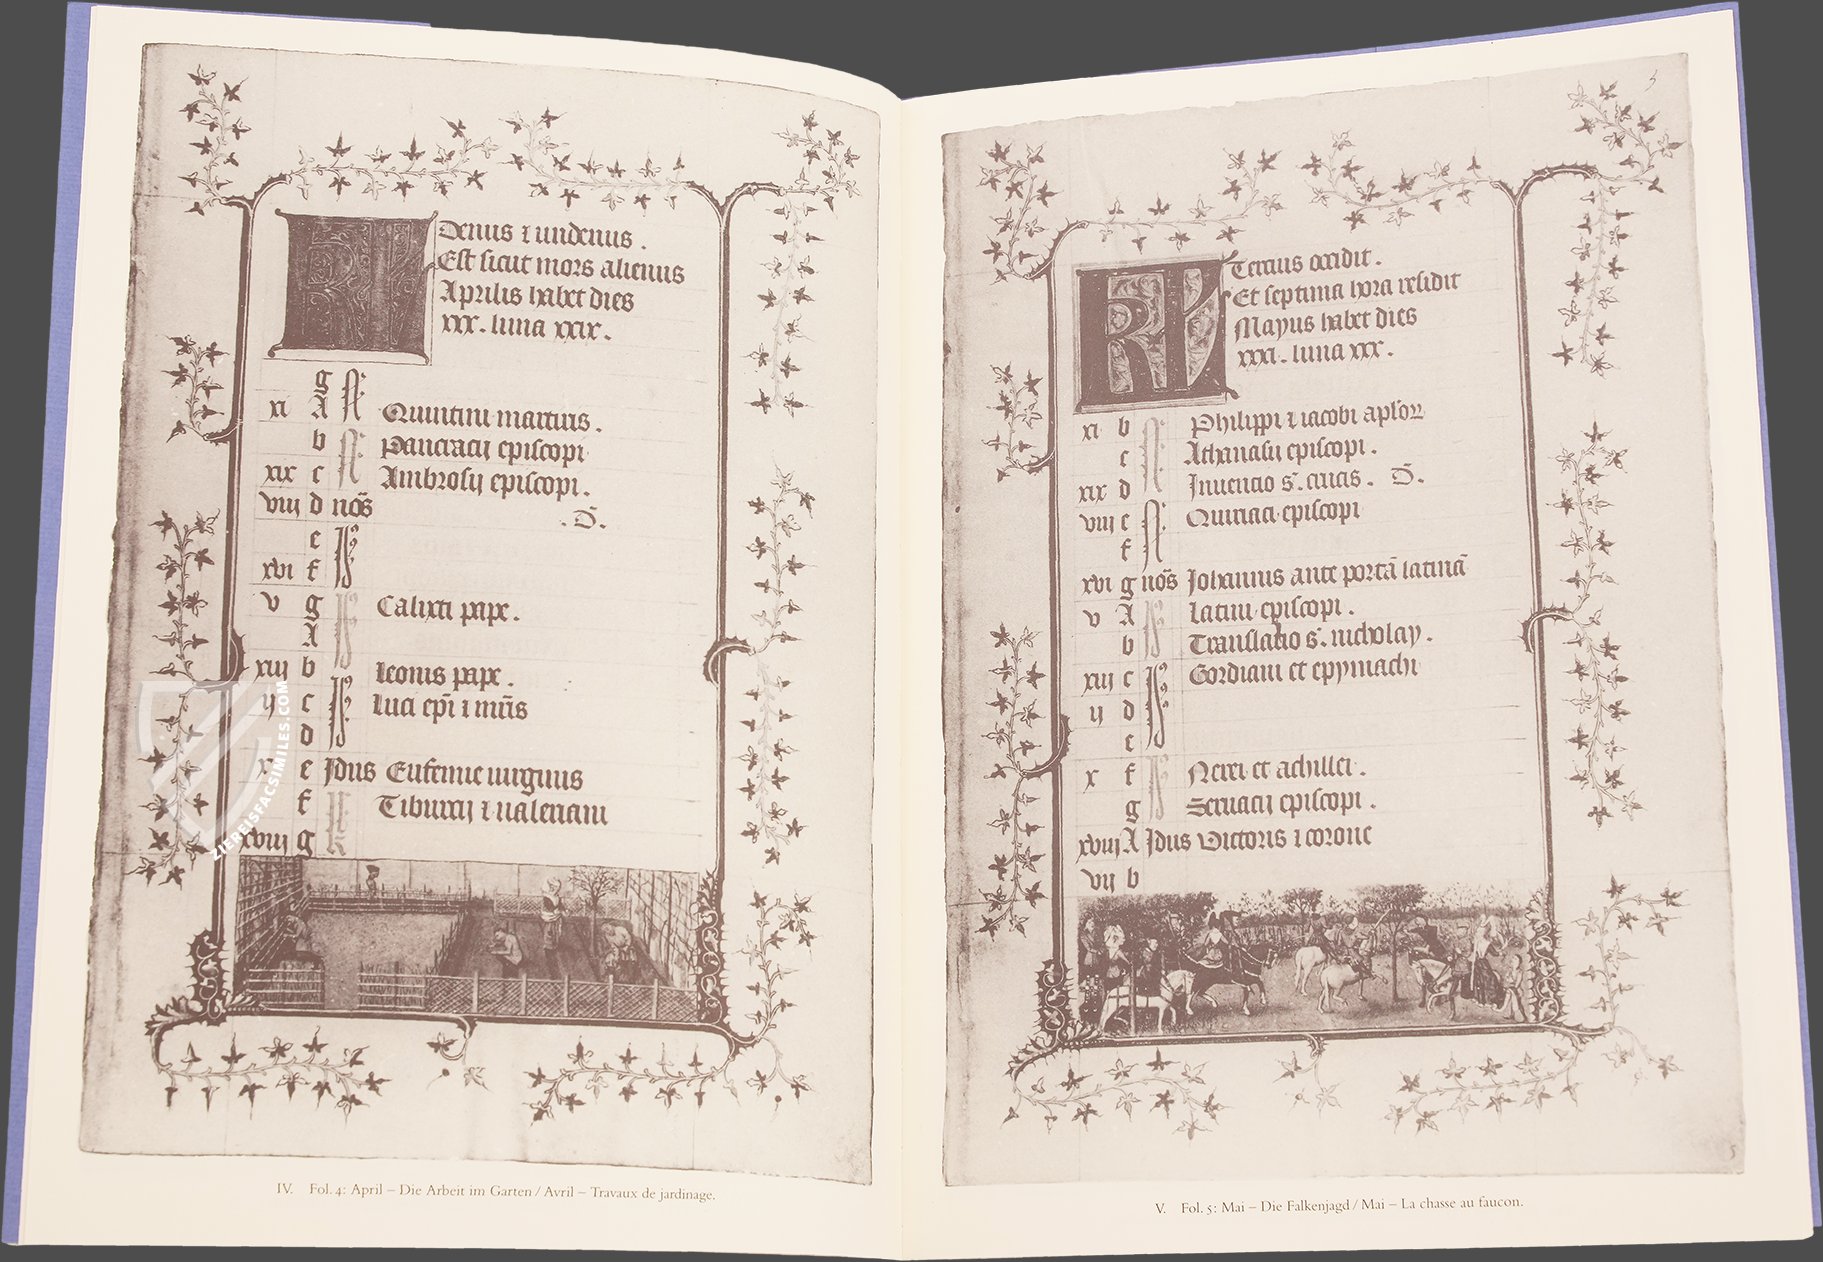 Denus ⁊ undenus .
Est sicut mors alienus
Aprilis habet dies
xxx . luna xxix .
g N̄
xi A N̄ Quintini martiris .
b N̄ Pancracij episcopi
xix c N̄ Ambrosij episcopi .
viij d nōs
.D̄.
e Jds
xvi f Jds
v g Jds Calixti pape .
A Jds
xiij b Jds Leonis pape .
ij c Jds Luci ep̄i ⁊ mr̄is
d Jds
x e Jdus Eufemie uirginis
f kl Tiburcij ⁊ ualeriani
xviij g kl
IV. Fol. 4: April – Die Arbeit im Garten / Avril – Travaux de jardinage.
5
KL
Tercius occidit .
Et septima hora residit
Mayus habet dies
xxxi . luna xxx .
xi b N̄ Philippi ⁊ iacobi apl̄oꝝ
c N̄ Athanasij episcopi .
xix d N̄ Inuencio s. crucis . D̄ .
viij e N̄ Quiriaci episcopi
f N̄
xvi g nōs Johannis ante portā latinā
v A Jds Latini episcopi .
b Jds Translatio s. nicholay .
xiij c Jds Gordiani et epymachi
ij d Jds
e Jds
x f Jds Nerei et achillei .
g Jds Seruacij episcopi .
xviij A Jdus Victoris ⁊ corone
vij b
V. Fol. 5: Mai – Die Falkenjagd / Mai – La chasse au faucon.
ZIEREISFACSIMILES.COM